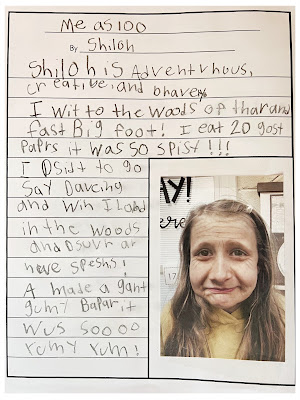 Me as 100
By Shiloh
Shiloh is Adventrhous,
creative, and brave,
I wit to the woods of thar and
fast Big foot! I eat 20 gost
PaPrs it was so spist !!!
I Dsidt to go
Say Daicing
and win I Land
in the woods
and Dsuvr a
neve speshis!
A made a gant
gumy Bapar it
wus soooo
Yumy Yum!
AY!
ere
17